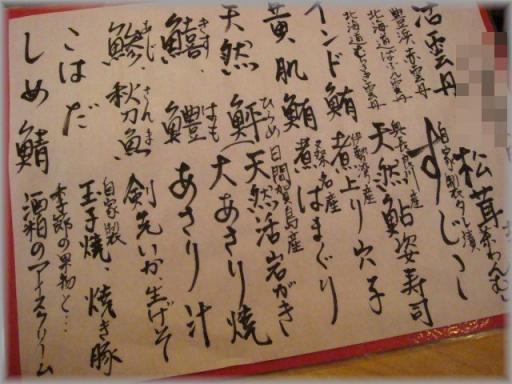 松茸茶わんむし
自家製だし漬
すじこ
奥長良川産
天然鮎姿寿司
伊勢湾産
煮上り穴子
桑名産
煮はまぐり
日間賀島産
天然活岩がき
大あさり焼
あさり汁
剣先いか、生げそ
自家製
玉子焼、焼き豚
季節の果物と…
酒粕のアイスクリーム
活雲丹
豊浜、赤雲丹
北海道ばふん雲丹
北海道むらさき雲丹
インド鮪
黄肌鮪
天然 鮃(ひらめ
鱚、きす
鱧 はも
鯵、あじ
秋刀魚 さんま
こはだ
しめ鯖